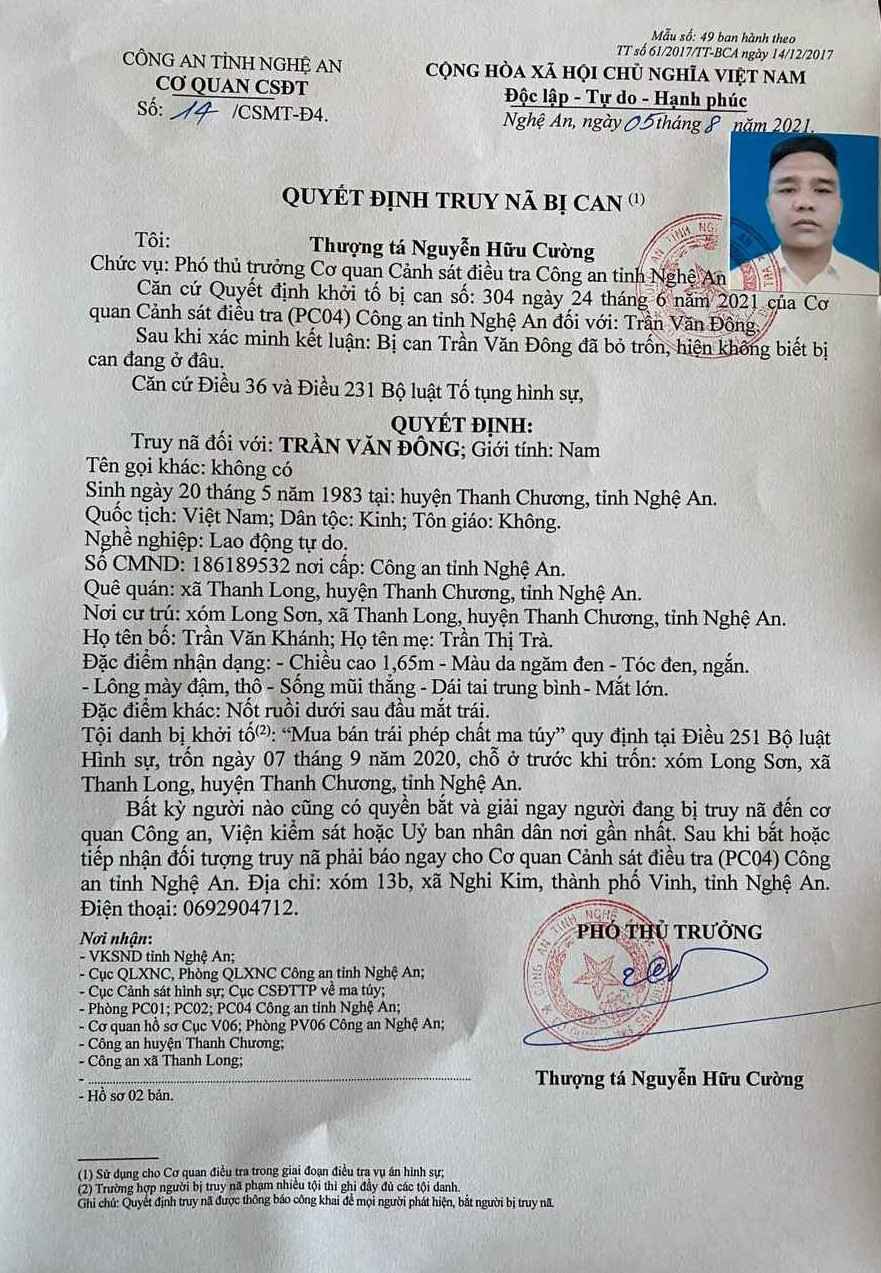 Mẫu số: 49 ban hành theo
TT số 61/2017/TT-BCA ngày 14/12/2017
CÔNG AN TỈNH NGHỆ AN
CƠ QUAN CSĐT
Số: 14 /CSMT-Đ4.
CỘNG HÒA XÃ HỘI CHỦ NGHĨA VIỆT NAM
Độc lập - Tự do - Hạnh phúc
Nghệ An, ngày 05 tháng 8 năm 2021.
QUYẾT ĐỊNH TRUY NÃ BỊ CAN (1)
Tôi: Thượng tá Nguyễn Hữu Cường
Chức vụ: Phó thủ trưởng Cơ quan Cảnh sát điều tra Công an tỉnh Nghệ An
Căn cứ Quyết định khởi tố bị can số: 304 ngày 24 tháng 6 năm 2021 của Cơ
quan Cảnh sát điều tra (PC04) Công an tỉnh Nghệ An đối với: Trần Văn Đông.
Sau khi xác minh kết luận: Bị can Trần Văn Đông đã bỏ trốn, hiện không biết bị
can đang ở đâu.
Căn cứ Điều 36 và Điều 231 Bộ luật Tố tụng hình sự,
QUYẾT ĐỊNH:
Truy nã đối với: TRẦN VĂN ĐÔNG; Giới tính: Nam
Tên gọi khác: không có
Sinh ngày 20 tháng 5 năm 1983 tại: huyện Thanh Chương, tỉnh Nghệ An.
Quốc tịch: Việt Nam; Dân tộc: Kinh; Tôn giáo: Không.
Nghề nghiệp: Lao động tự do.
Số CMND: 186189532 nơi cấp: Công an tỉnh Nghệ An.
Quê quán: xã Thanh Long, huyện Thanh Chương, tỉnh Nghệ An.
Nơi cư trú: xóm Long Sơn, xã Thanh Long, huyện Thanh Chương, tỉnh Nghệ An.
Họ tên bố: Trần Văn Khánh; Họ tên mẹ: Trần Thị Trà.
Đặc điểm nhận dạng: - Chiều cao 1,65m - Màu da ngăm đen - Tóc đen, ngắn.
- Lông mày đậm, thô - Sống mũi thẳng - Dái tai trung bình - Mắt lớn.
Đặc điểm khác: Nốt ruồi dưới sau đầu mắt trái.
Tội danh bị khởi tố(2): “Mua bán trái phép chất ma túy” quy định tại Điều 251 Bộ luật
Hình sự, trốn ngày 07 tháng 9 năm 2020, chỗ ở trước khi trốn: xóm Long Sơn, xã
Thanh Long, huyện Thanh Chương, tỉnh Nghệ An.
Bất kỳ người nào cũng có quyền bắt và giải ngay người đang bị truy nã đến cơ
quan Công an, Viện kiểm sát hoặc Uỷ ban nhân dân nơi gần nhất. Sau khi bắt hoặc
tiếp nhận đối tượng truy nã phải báo ngay cho Cơ quan Cảnh sát điều tra (PC04) Công
an tỉnh Nghệ An. Địa chỉ: xóm 13b, xã Nghi Kim, thành phố Vinh, tỉnh Nghệ An.
Điện thoại: 0692904712.
Nơi nhận:
- VKSND tỉnh Nghệ An;
- Cục QLXNC, Phòng QLXNC Công an tỉnh Nghệ An;
- Cục Cảnh sát hình sự; Cục CSĐTTP về ma túy;
- Phòng PC01; PC02; PC04 Công an tỉnh Nghệ An;
- Cơ quan hồ sơ Cục V06; Phòng PV06 Công an Nghệ An;
- Công an huyện Thanh Chương;
- Công an xã Thanh Long;
- Hồ sơ 02 bản.
PHÓ THỦ TRƯỞNG
Thượng tá Nguyễn Hữu Cường
(1) Sử dụng cho Cơ quan điều tra trong giai đoạn điều tra vụ án hình sự;
(2) Trường hợp người bị truy nã phạm nhiều tội thì ghi đầy đủ các tội danh.
Ghi chú: Quyết định truy nã được thông báo công khai để mọi người phát hiện, bắt người bị truy nã.